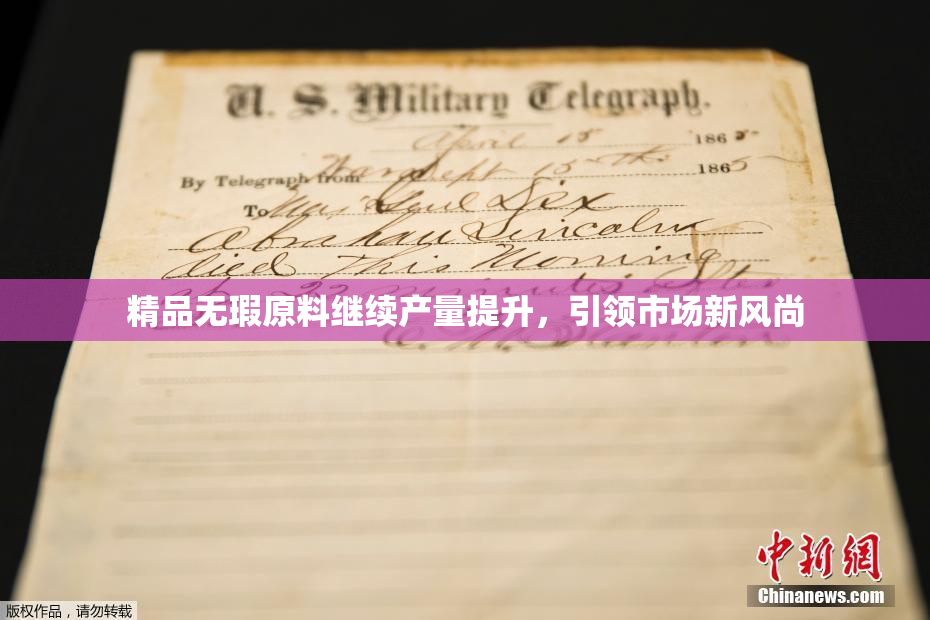 U. S. Military Telegraph.
April 15 1865
By Telegraph from War Dept 15th 1865
To Maj Genl Dix
Abraham Lincoln
died This Morning
at 22 minutes after
精品无瑕原料继续产量提升，引领市场新风尚
E. M. Stanton
中新网
Chinanews.com
版权作品，请勿转载